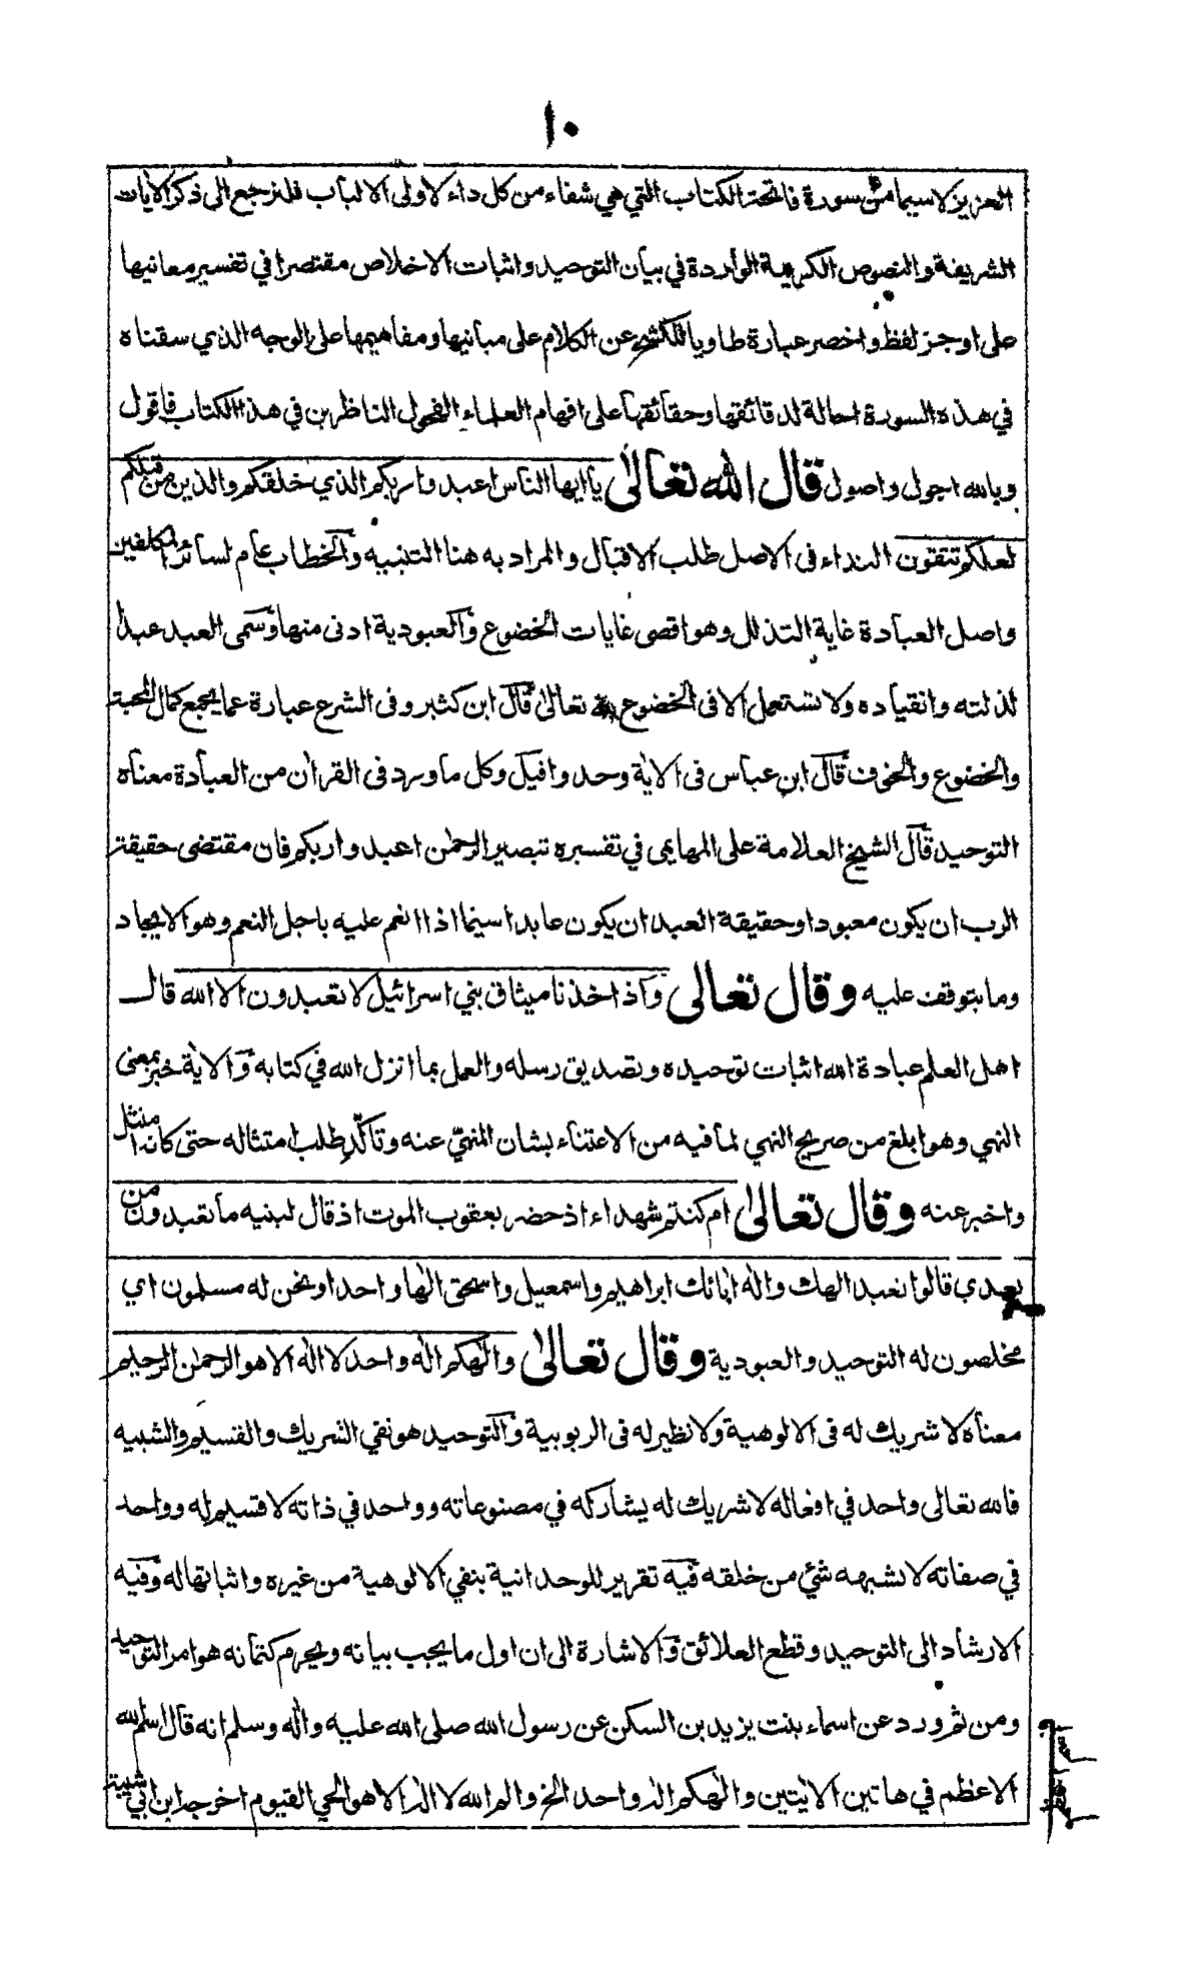 ١٠
العزيز لاسيما من سورة فاتحة الكتاب التي هي شفاء من كل داء لاولى الالباب فلنرجع الى ذكر الايات
الشريفة والنصوص الكريمة الواردة في بيان التوحيد واثبات الاخلاص مقتصرا في تفسير معانيها
على اوجز لفظ واخصر عبارة طاويا للكشح عن الكلام على مبانيها ومفاهيمها على الوجه الذي سقناه
في هذه السورة احالة لدقائقها وحقائقها على افهام العلماء الفحول الناظرين في هذا الكتاب فاقول
وبالله اجول واصول قال الله تعالى يا ايها الناس اعبدوا ربكم الذي خلقكم والذين من قبلكم
لعلكم تتقون النداء فى الاصل طلب الاقبال والمراد به هنا التنبيه والخطاب عام لسائر المكلفين
واصل العبادة غاية التذلل وهو اقصى غايات الخضوع والعبودية ادنى منها وسمى العبد عبدا
لذلته وانقياده ولا تستعمل الا فى الخضوع لله تعالى قال ابن كثير وفى الشرع عبارة عما يجمع كمال المحبة
والخضوع والخوف قال ابن عباس فى الاية وحدوا فيل وكل ما ورد فى القران من العبادة معناه
التوحيد قال الشيخ العلامة على المهايمى في تفسيره تبصير الرحمن اعبدوا ربكم فان مقتضى حقيقة
الرب ان يكون معبودا وحقيقة العبد ان يكون عابدا سيما اذا انعم عليه باجل النعم وهو الايجاد
وما يتوقف عليه وقال تعالى واذ اخذنا ميثاق بني اسرائيل لا تعبدون الا الله قال
اهل العلم عبادة الله اثبات توحيده وتصديق رسله والعمل بما انزل الله في كتابه والاية خبر بمعنى
النهي وهو ابلغ من صريح النهي لما فيه من الاعتناء بشان المنهيّ عنه وتاكّد طلب امتثاله حتى كانه امتثل
واخبر عنه وقال تعالى ام كنتم شهداء اذ حضر يعقوب الموت اذ قال لبنيه ما تعبدون من
بعدي قالوا نعبد الهك واله ابائك ابراهيم واسمعيل واسحق الها واحدا ونحن له مسلمون اي
مخلصون له التوحيد والعبودية وقال تعالى والهكم اله واحد لا اله الا هو الرحمن الرحيم
معناه لا شريك له فى الالوهية ولا نظير له فى الربوبية والتوحيد هو نفي الشريك والقسيم والشبيه
فالله تعالى واحد في افعاله لا شريك له يشاركه في مصنوعاته وواحد في ذاته لا قسيم له وواحد
في صفاته لا يشبهه شئ من خلقه فيه تقرير للوحدانية بنفي الالوهية من غيره واثباتها له وفيه
الارشاد الى التوحيد وقطع العلائق والاشارة الى ان اول ما يجب بيانه ويحرم كتمانه هو امر التوحيد
ومن ثم ورد عن اسماء بنت يزيد بن السكن عن رسول الله صلى الله عليه واله وسلم انه قال اسم الله
الاعظم في هاتين الايتين والهكم اله واحد الخ والم الله لا اله الا هو الحي القيوم اخرجه ابن ابي شيبة